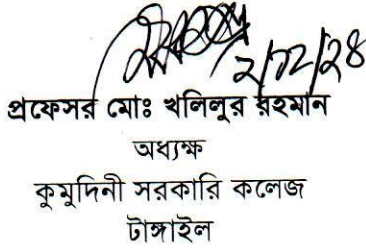 ২/১২/২৪
প্রফেসর মোঃ খলিলুর রহমান
অধ্যক্ষ
কুমুদিনী সরকারি কলেজ
টাঙ্গাইল